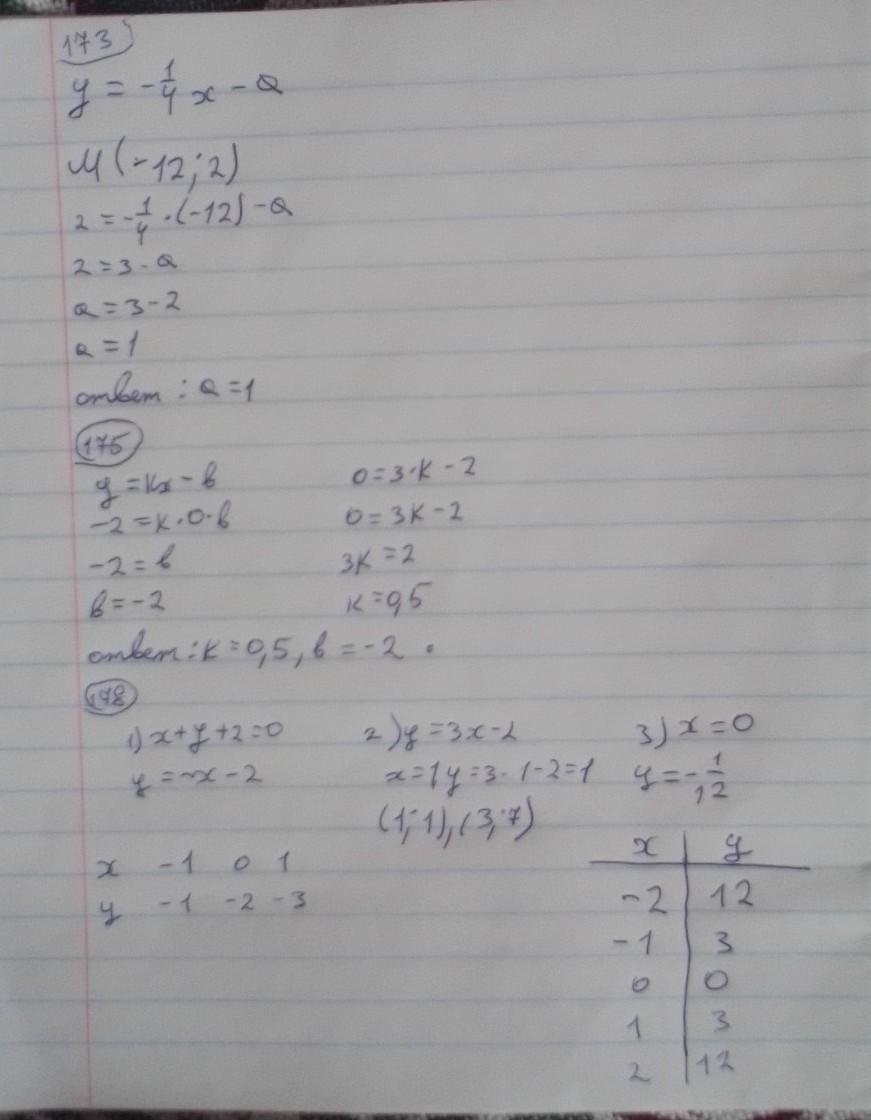 173
y = -1/4 x - a
M(-12; 2)
2 = -1/4 · (-12) - a
2 = 3 - a
a = 3 - 2
a = 1
ответ : a = 1
175
y = kx - b
-2 = k · 0 · b
-2 = b
b = -2
0 = 3 · k - 2
0 = 3k - 2
3k = 2
k = 0,5
ответ : k = 0,5, b = -2 .
178
1) x + y + 2 = 0
y = -x - 2
x -1 0 1
y -1 -2 -3
2) y = 3x - 2
x = 1 y = 3 · 1 - 2 = 1
(1; 1), (3; 7)
3) x = 0
y = -1/12
x y
-2 12
-1 3
0 0
1 3
2 12